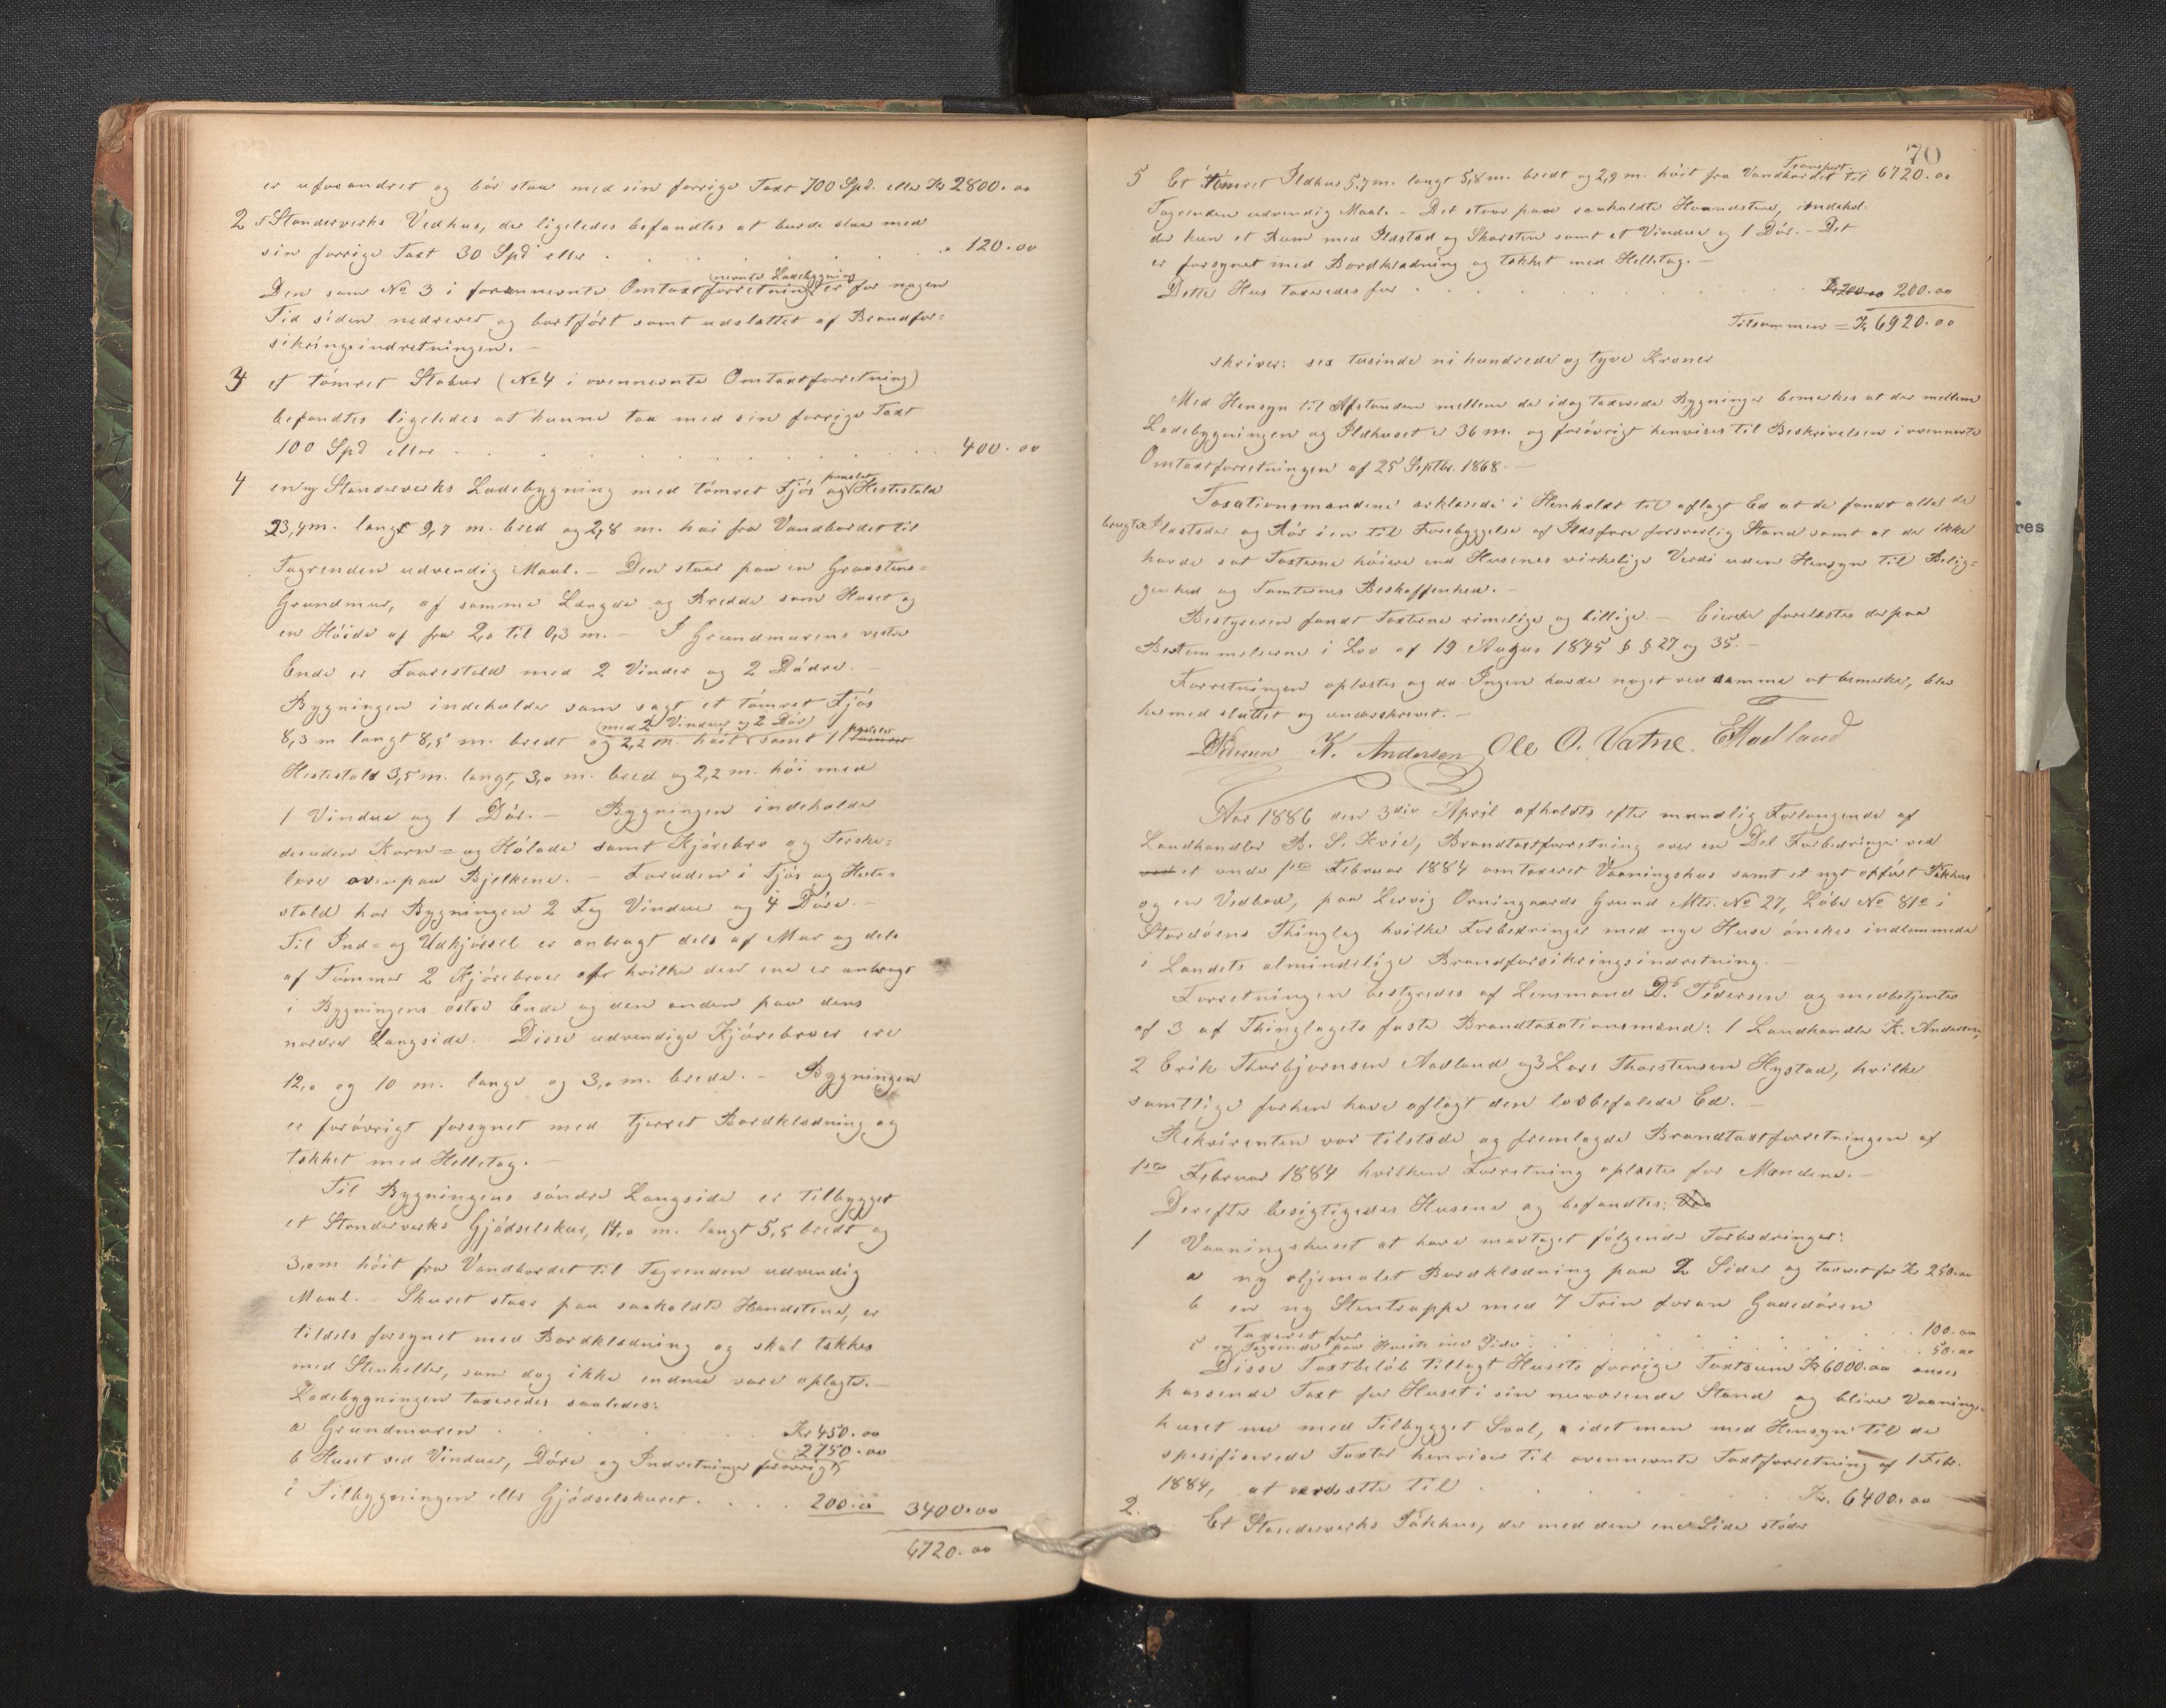 er uforandret og bør staa med sin forrige Taxt 700 Spd. eller Kr 2800.00
2 Stænderverks Vedhus, der ligeledes befandtes at burde staa med
sin forrige Taxt 30 Spd eller . . . . . 120.00
Den som No 3 i forannevnte Omtaxtforretning nevnte Ladebygning er for nogen
Tid siden nedrevet og bortført samt udslettet af Brandfor=
sikringsindretningen. -
3 et tømret Stabur (No 4 i ovennevnte Omtaxtforretning)
befandtes ligeledes at kunne staa med sin forrige Taxt
100 Spd eller . . . . . 400.00
4 en ny Stænderverks Ladebygning med tømret Fjøs og Hestestald
23,4 m. langt 9,7 m. bred og 2,8 m. høi fra Vandbordet til
Tagrenden udvendig Maal. - Den staar paa en Graastens=
Grundmur, af samme Længde og Bredde som Huset og
en Høide af fra 2,0 til 0,3 m. - I Grundmurens vestre
Ende er Faarestald med 2 Vinder og 2 Dødre. -
Bygningen indeholder som sagt et tømret Fjøs
8,3 m langt 8,5 m. bredt og 2,2 m. høit (med 2 Vinduer og 2 Dør) samt 1
Hestestald 3,5 m. langt, 3,0 m. bred og 2,2 m. høi med
1 Vindue og 1 Dør. - Bygningen indeholder
desuden Korn= og Hølade samt Kjørebro og Terske=
love ovenpaa Bjelkene. - Foruden i Fjøs og Heste=
stald har Bygningen 2 Fag Vinduer og 4 Døre. -
Til Ind= og Udkjørsel er anbragt dels af Mur og dels
af Tømmer 2 Kjørebroer af hvilke den ene er anbragt
i Bygningens østre Ende og den anden paa dens
nordre Langside. Disse udvendige Kjørebroer ere
12,0 og 10 m. lange og 3,0 m. brede. - Bygningen
er forøvrigt forsynet med tjæret Bordklædning og
tækket med Helletag. -
Til Bygningens søndre Langside er tilbygget
et Stænderverks Gjødselskur, 14,0 m. langt 5,5 bredt og
3,0 m høit fra Vandbordet til Tagrenden udvendig
Maal. - Skuret staar paa saakaldte Haandstene, er
tildels forsynet med Bordklædning og skal tækkes
med Stenheller, som dog ikke endnu vare oplagte. -
Ladebygningen taxeredes saaledes:
a Grundmuren . . . . Kr 450.00
b Huset ved Vinduer, Døre og Indretninger forøvrigt 2750.00
c Tilbygningen eller Gjødselskuret . . . . 200.00 3400.00
6720.00
70
Transport 6720.00
5 Et tømret Ildhus 5,7 m. langt 5,8 m. bredt og 2,9 m. høit fra Vandbordet til
Tagrenden udvendig Maal. - Det staar paa saakaldte Haandstene, indehol
der kun et Rum med Ildsted og Skorsten samt et Vindue og 1 Dør. - Det
er forsynet med Bordklædning og tækket med Helletag. -
Dette Hus taxeredes for . . . . . 200.00
Tilsammen = Kr 6920.00
skriver: sex tusinde ni hundrede og tyve Kroner
Med Hensyn til Afstanden mellem de idag taxerede Bygninger bemerkes at der mellem
Ladebygningen og Ildhuset er 36 m. og forøvrigt henvises til Beskrivelsen i ovennevnte
Omtaxtforretningen af 25 Septbr. 1868. -
Taxationsmændene erklærede i Henhold til aflagt Ed at de fandt alle de
brugte Ildsteder og Rør i en til Forebyggelse af Ildsfare forsvarlig Stand samt at de ikke
havde sat Taxterne høiere end Husenes virkelige Verdi uden Hensyn til Belig=
genhed og Tomternes Beskaffenhed. -
Bestyreren fandt Taxterne rimelige og billige. - Eieren forelæstes derpaa
Bestemmelserne i Lov af 19 August 1845 § § 27 og 35. -
Forretningen oplæstes og da Ingen havde noget ved samme at bemerke, blev
hermed sluttet og underskrevet. -
DPedersen K. Andersen Ole O. Vatne. EAadland
Aar 1886 den 3die April afholdtes efter mundlig Forlangende af
Landhandler B. S. Kvie, Brandtaxtforretning over en Del Forbedringer ved
et under 1ste Februar 1884 omtaxeret Vaaningshus samt et nyt opført Pakhus
og en Vedbod, paa Lervig Ovningaards Grund Mtr. No 27, Løbe No 81a i
Stordøens Thinglag hvilke Forbedringer med nye Huse ønskes indlemmede
i Landets almindelige Brandforsikringsindretning. -
Forretningen bestyredes af Lensmand D. Pedersen og medbetjentes
af 3 af Thinglagets faste Brandtaxationsmænd: 1 Landhandler K. Andersen,
2 Erik Thorbjørnsen Aadland og 3 Lars Thorstensen Hystad, hvilke
samtlige forhen have aflagt den lovbefalede Ed. -
Rekvirenten var tilstede og fremlagde Brandtaxtforretningen af
1ste Februar 1884 hvilken Forretning oplæstes for Mændene. -
Derefter besigtigedes Husene og befandtes:
1 Vaaningshuset at have modtaget følgende Forbedringer:
a ny oljemalet Bordklædning paa 2 Sider og taxeret for Kr 250.00
b en ny Stentrappe med 7 Trin foran Gadedøren
taxeret for . . . . . 100.00
c en Tagrende paa Husets ene Side . . . . 50.00
Disse Taxtbeløb tillagt Husets forrige Taxtsum Kr 6000.00 anses
passende Taxt for Huset i sin nuværende Stand og bliver Vaanings=
huset nu med Tilbygget Sval, idet man med Hensyn til de
spesifiserede Taxter henviser til ovennevnte Taxtforretning af 1 Febr.
1884, at verdsætte til . . . . Kr. 6400.00
2. Et Stænderverks Pakhus, der med den ene Side støder